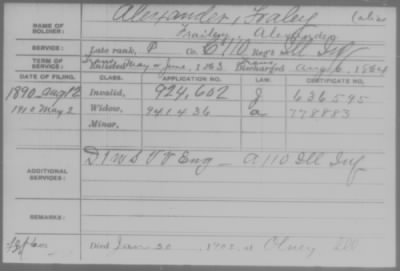 NAME OF SOLDIER: Alexander, Fraley (alias
Frailey, Alexander
SERVICE: Late rank, P Co. C, 110 Reg't Ill Inf
TERM OF SERVICE: Enlisted May or June, 1863 Discharged Aug 6, 1864
DATE OF FILING. CLASS. APPLICATION NO. LAW. CERTIFICATE NO.
1890 Aug 12 Invalid, 924,602 J 636595
May 2 Widow, 941436 a 778883
Minor,
ADDITIONAL SERVICES: Eng - A 110 Ill Inf
REMARKS:
Died Jan 30, 1902, at Olney Ill